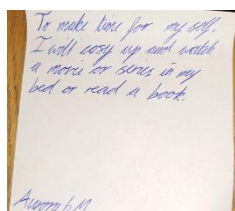 To make time for my self.
I will cosy up and watch
a movie or series in my
bed or read a book.